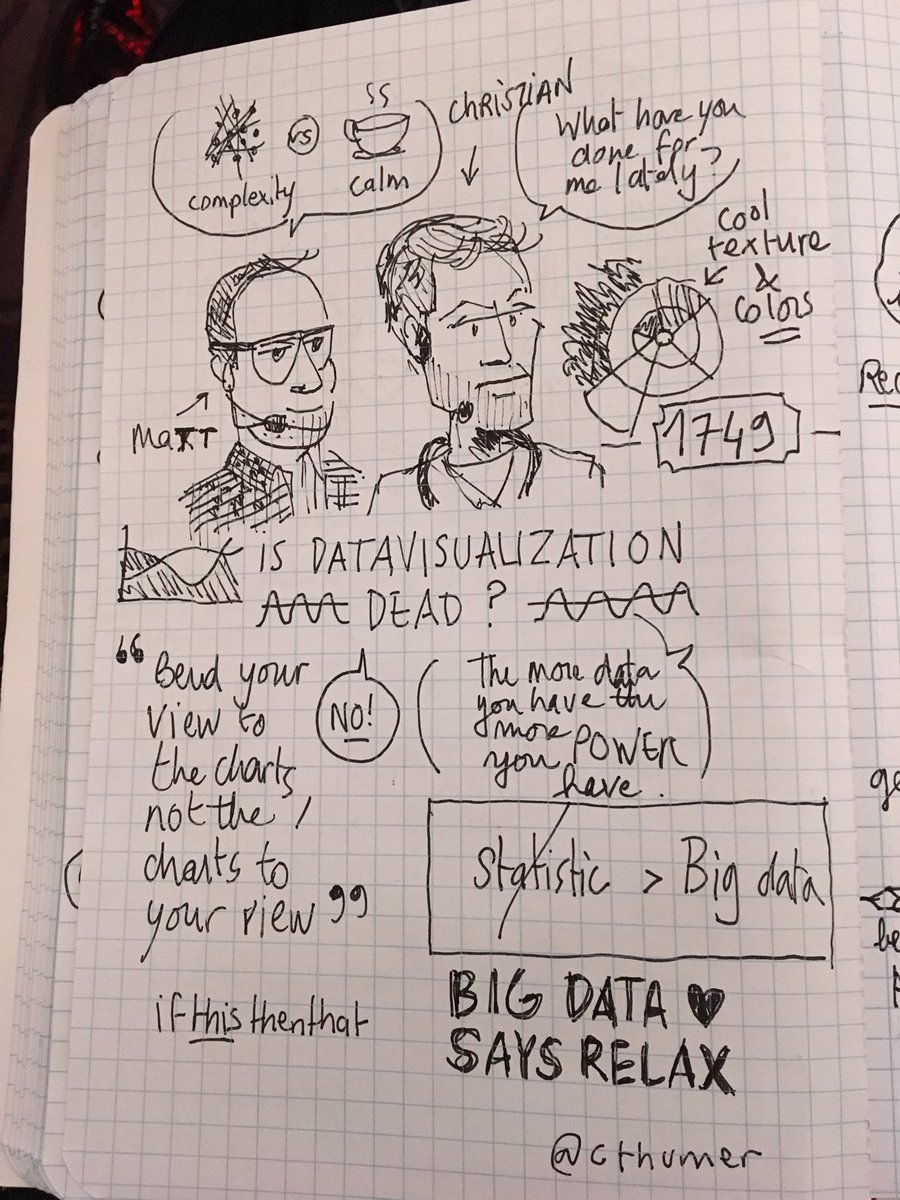 complexity
vs
calm
CHRISTIAN
What have you
done for
me lately?
Cool
texture
&
colors
MATT
1749
IS DATAVISUALIZATION
DEAD ?
“ Bend your
view to
the charts
not the
charts to
your view ”
NO!
The more data
you have the
more
you POWER
have.
Statistic > Big data
BIG DATA ♥
SAYS RELAX
ifthisthenthat
@cthumer